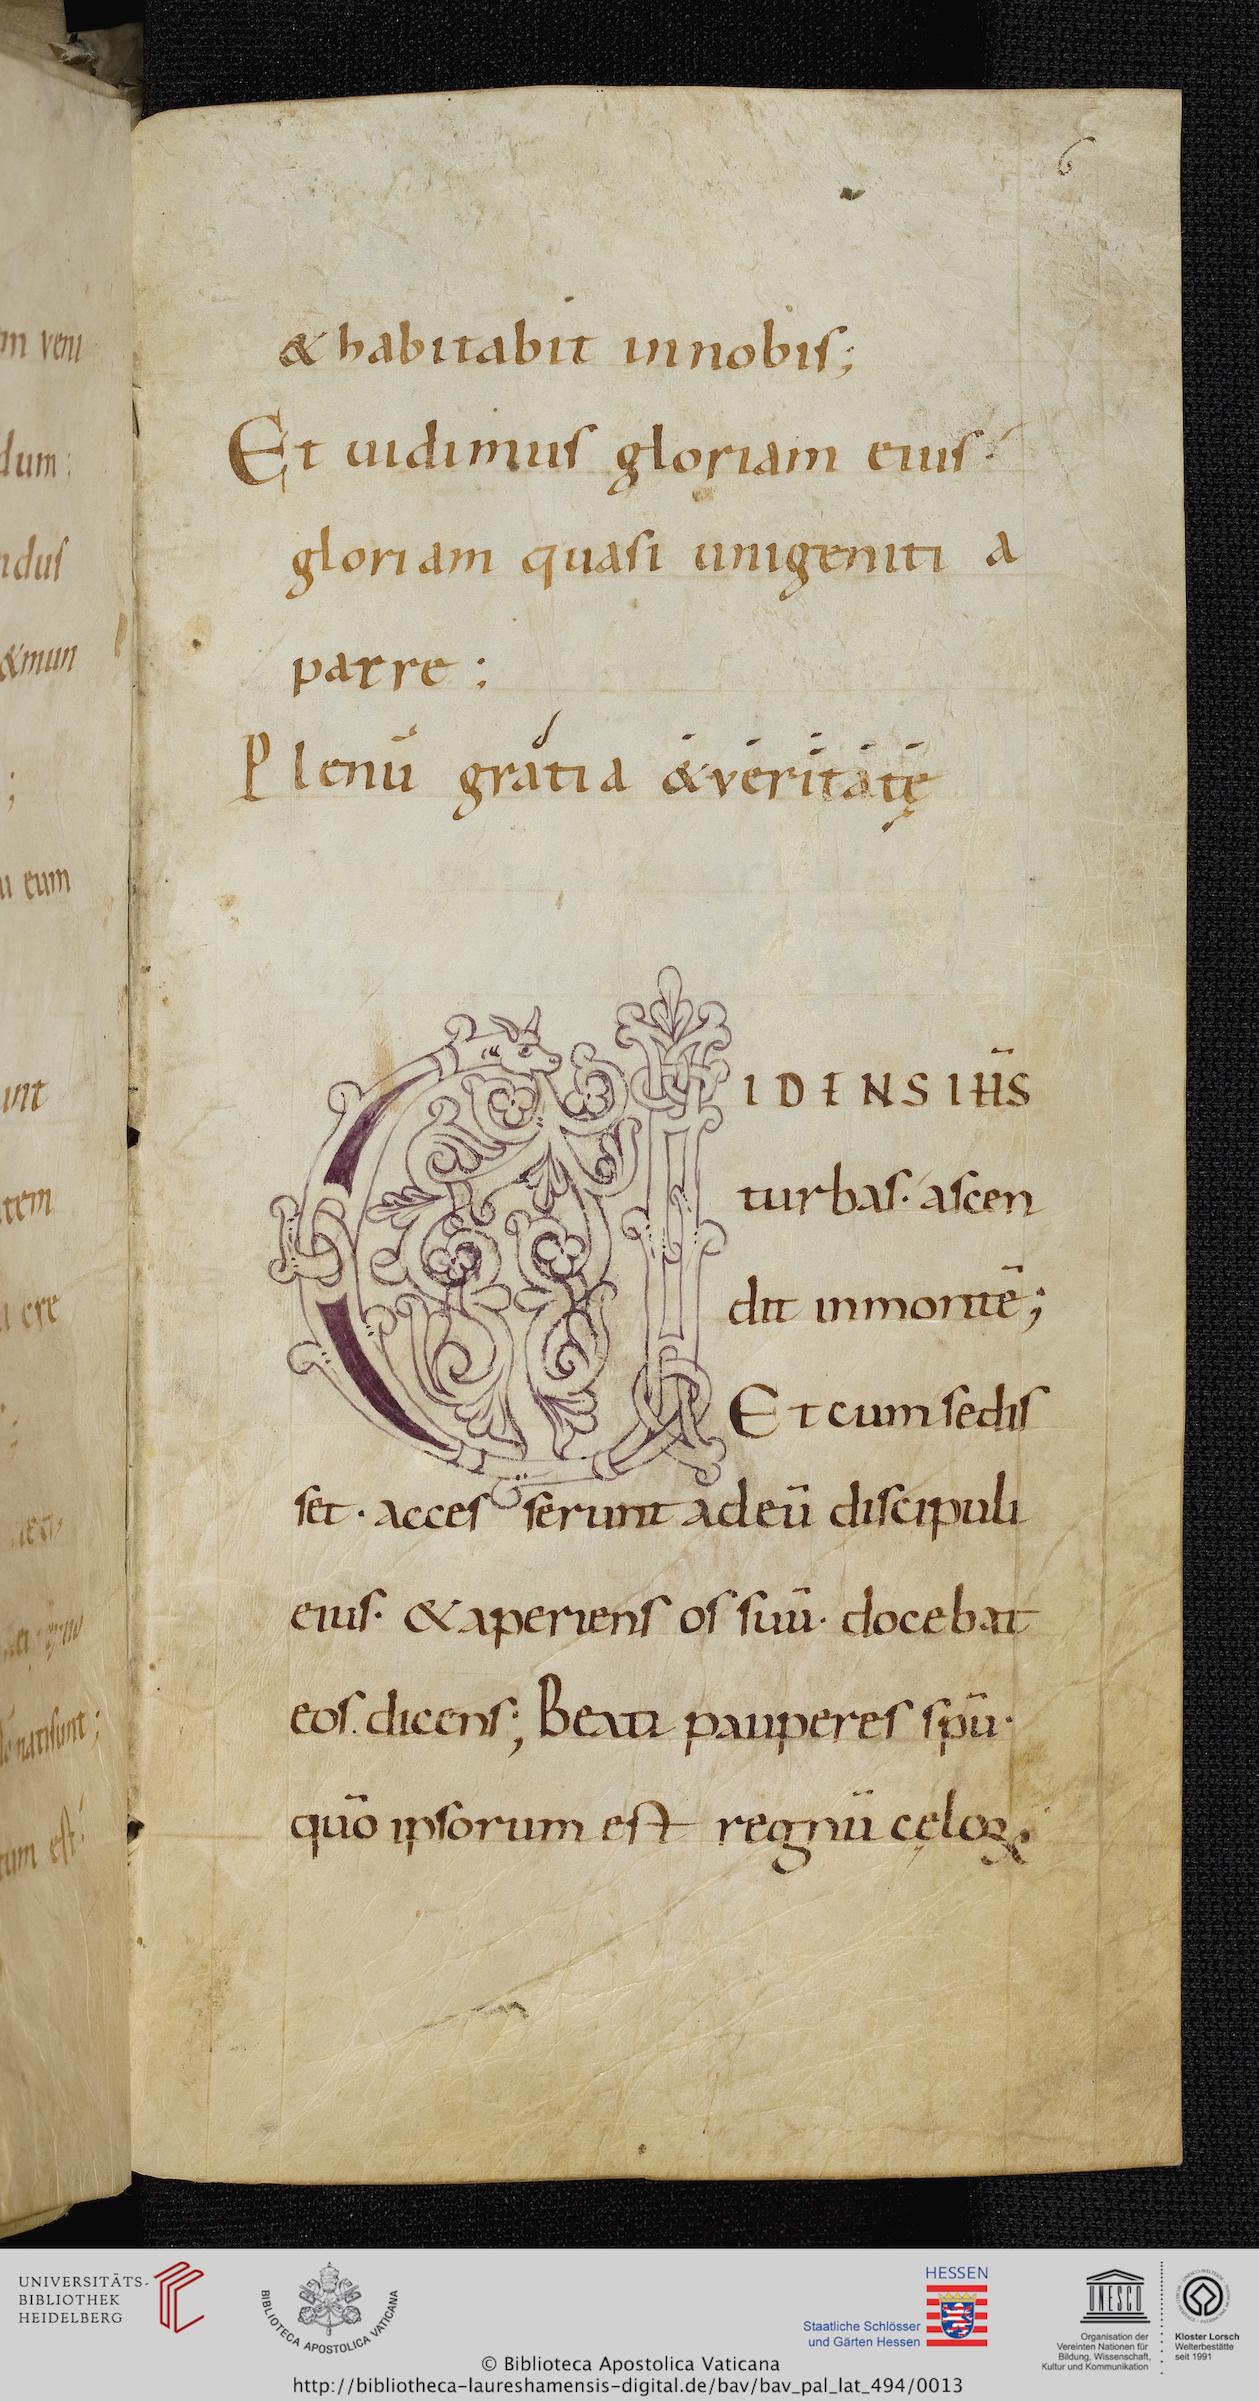 m veni
dum:
ndus
&mun
;
u eum
unt
tem
natisunt;
tum est
6
& habitabit innobis;
Et uidimus gloriam eius
gloriam quasi unigeniti a
patre;
Plenū gratia &veritatę
UIDENS IHS̄
turbas· ascen
dit inmontē;
Et cum sedis
set· acces serunt adeū discipuli
eius· &aperiens os suū· docebat
eos. dicens; Beati pauperes spū·
quō ipsorum est regnū cęloꝝ
UNIVERSITÄTS-
BIBLIOTHEK
HEIDELBERG
BIBLIOTECA APOSTOLICA VATICANA
HESSEN
Staatliche Schlösser
und Gärten Hessen
UNESCO
Organisation der
Vereinten Nationen für
Bildung, Wissenschaft,
Kultur und Kommunikation
Kloster Lorsch
Welterbestätte
seit 1991
© Biblioteca Apostolica Vaticana
http://bibliotheca-laureshamensis-digital.de/bav/bav_pal_lat_494/0013